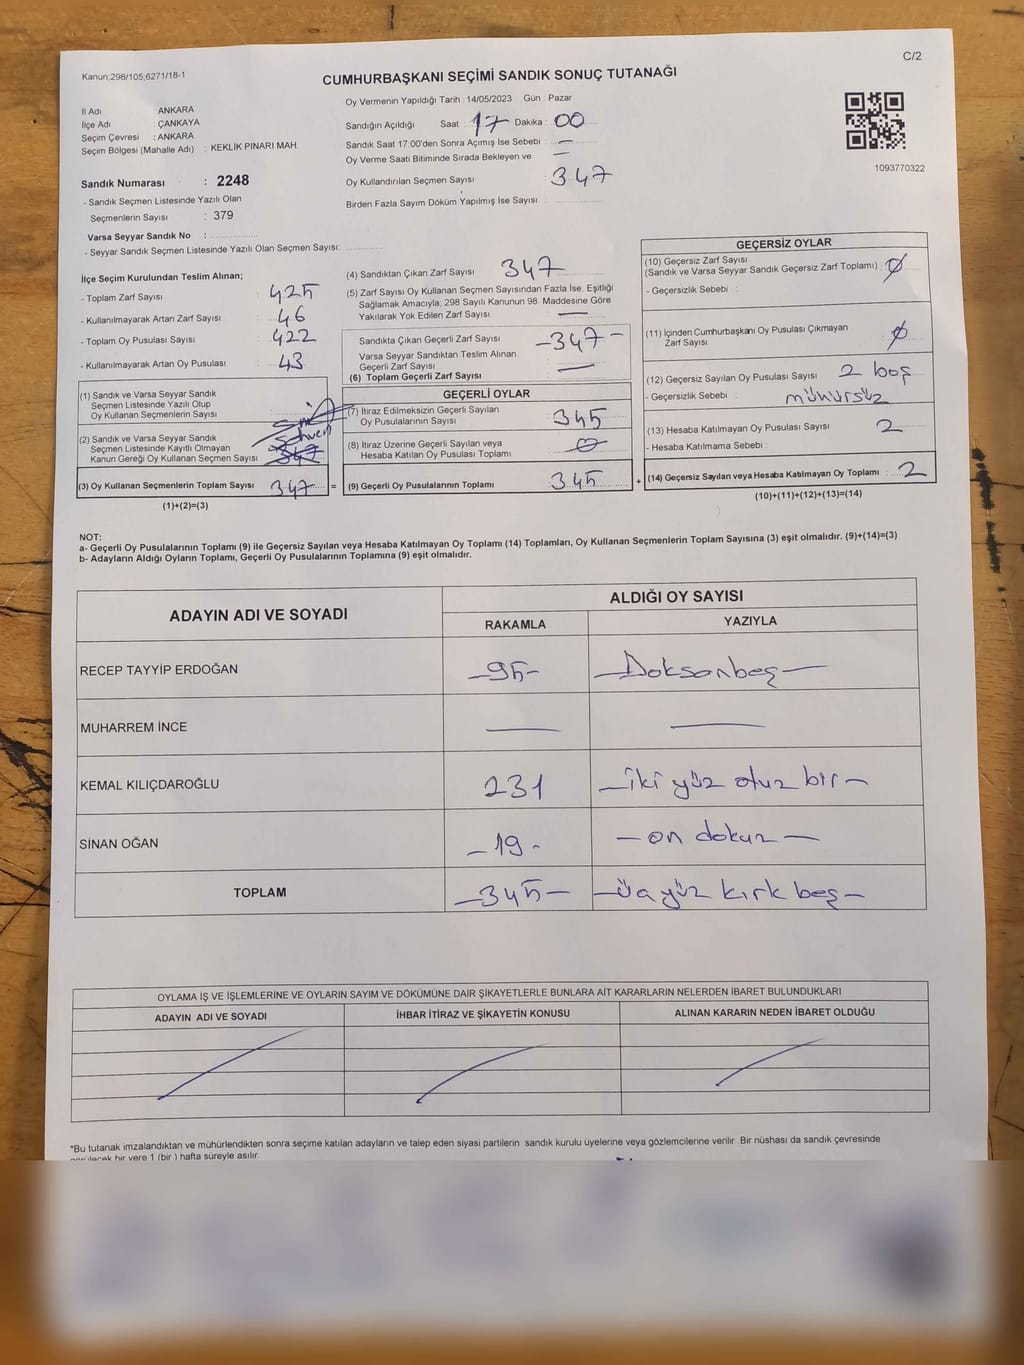 Kanun:298/105;6271/18-1
C/2
CUMHURBAŞKANI SEÇİMİ SANDIK SONUÇ TUTANAĞI
İl Adı : ANKARA
İlçe Adı : ÇANKAYA
Seçim Çevresi : ANKARA
Seçim Bölgesi (Mahalle Adı) : KEKLİK PINARI MAH.
Sandık Numarası : 2248
- Sandık Seçmen Listesinde Yazılı Olan
Seçmenlerin Sayısı : 379
Varsa Seyyar Sandık No :
- Seyyar Sandık Seçmen Listesinde Yazılı Olan Seçmen Sayısı:
Oy Vermenin Yapıldığı Tarih : 14/05/2023 Gün : Pazar
Sandığın Açıldığı Saat : 17 Dakika : 00
Sandık Saat 17:00'den Sonra Açımış İse Sebebi : —
Oy Verme Saati Bitiminde Sırada Bekleyen ve —
Oy Kullandırılan Seçmen Sayısı : 347
Birden Fazla Sayım Döküm Yapılmış İse Sayısı :
1093770322
İlçe Seçim Kurulundan Teslim Alınan;
- Toplam Zarf Sayısı : 425
- Kullanılmayarak Artan Zarf Sayısı : 46
- Toplam Oy Pusulası Sayısı : 422
- Kullanılmayarak Artan Oy Pusulası : 43
(1) Sandık ve Varsa Seyyar Sandık
Seçmen Listesinde Yazılı Olup
Oy Kullanan Seçmenlerin Sayısı :
(2) Sandık ve Varsa Seyyar Sandık
Seçmen Listesinde Kayıtlı Olmayan
Kanun Gereği Oy Kullanan Seçmen Sayısı : 347
(3) Oy Kullanan Seçmenlerin Toplam Sayısı : 347 =
(1)+(2)=(3)
(4) Sandıktan Çıkan Zarf Sayısı : 347
(5) Zarf Sayısı Oy Kullanan Seçmen Sayısından Fazla İse, Eşitliği
Sağlamak Amacıyla; 298 Sayılı Kanunun 98. Maddesine Göre
Yakılarak Yok Edilen Zarf Sayısı : —
Sandıkta Çıkan Geçerli Zarf Sayısı : -347-
Varsa Seyyar Sandıktan Teslim Alınan
Geçerli Zarf Sayısı : —
(6) Toplam Geçerli Zarf Sayısı :
GEÇERLİ OYLAR
(7) İtiraz Edilmeksizin Geçerli Sayılan
Oy Pusulalarının Sayısı : 345
(8) İtiraz Üzerine Geçerli Sayılan veya
Hesaba Katılan Oy Pusulası Toplamı : 0
(9) Geçerli Oy Pusulalarının Toplamı : 345 +
GEÇERSİZ OYLAR
(10) Geçersiz Zarf Sayısı
(Sandık ve Varsa Seyyar Sandık Geçersiz Zarf Toplamı) : Ø
- Geçersizlik Sebebi :
(11) İçinden Cumhurbaşkanı Oy Pusulası Çıkmayan
Zarf Sayısı : Ø
(12) Geçersiz Sayılan Oy Pusulası Sayısı : 2 boş
- Geçersizlik Sebebi : mühürsüz
(13) Hesaba Katılmayan Oy Pusulası Sayısı : 2
- Hesaba Katılmama Sebebi :
(14) Geçersiz Sayılan veya Hesaba Katılmayan Oy Toplamı : 2
(10)+(11)+(12)+(13)=(14)
NOT:
a- Geçerli Oy Pusulalarının Toplamı (9) ile Geçersiz Sayılan veya Hesaba Katılmayan Oy Toplamı (14) Toplamları, Oy Kullanan Seçmenlerin Toplam Sayısına (3) eşit olmalıdır. (9)+(14)=(3)
b- Adayların Aldığı Oyların Toplamı, Geçerli Oy Pusulalarının Toplamına (9) eşit olmalıdır.
ADAYIN ADI VE SOYADI
ALDIĞI OY SAYISI
RAKAMLA YAZIYLA
RECEP TAYYİP ERDOĞAN -95- —Doksanbeş—
MUHARREM İNCE — —
KEMAL KILIÇDAROĞLU 231 —iki yüz otuz bir—
SİNAN OĞAN -19- —on dokuz—
TOPLAM -345- —üçyüz kırk beş—
OYLAMA İŞ VE İŞLEMLERİNE VE OYLARIN SAYIM VE DÖKÜMÜNE DAİR ŞİKAYETLERLE BUNLARA AİT KARARLARIN NELERDEN İBARET BULUNDUKLARI
ADAYIN ADI VE SOYADI İHBAR İTİRAZ VE ŞİKAYETİN KONUSU ALINAN KARARIN NEDEN İBARET OLDUĞU
*Bu tutanak imzalandıktan ve mühürlendikten sonra seçime katılan adayların ve talep eden siyasi partilerin sandık kurulu üyelerine veya gözlemcilerine verilir. Bir nüshası da sandık çevresinde
görülecek bir yere 1 (bir ) hafta süreyle asılır.